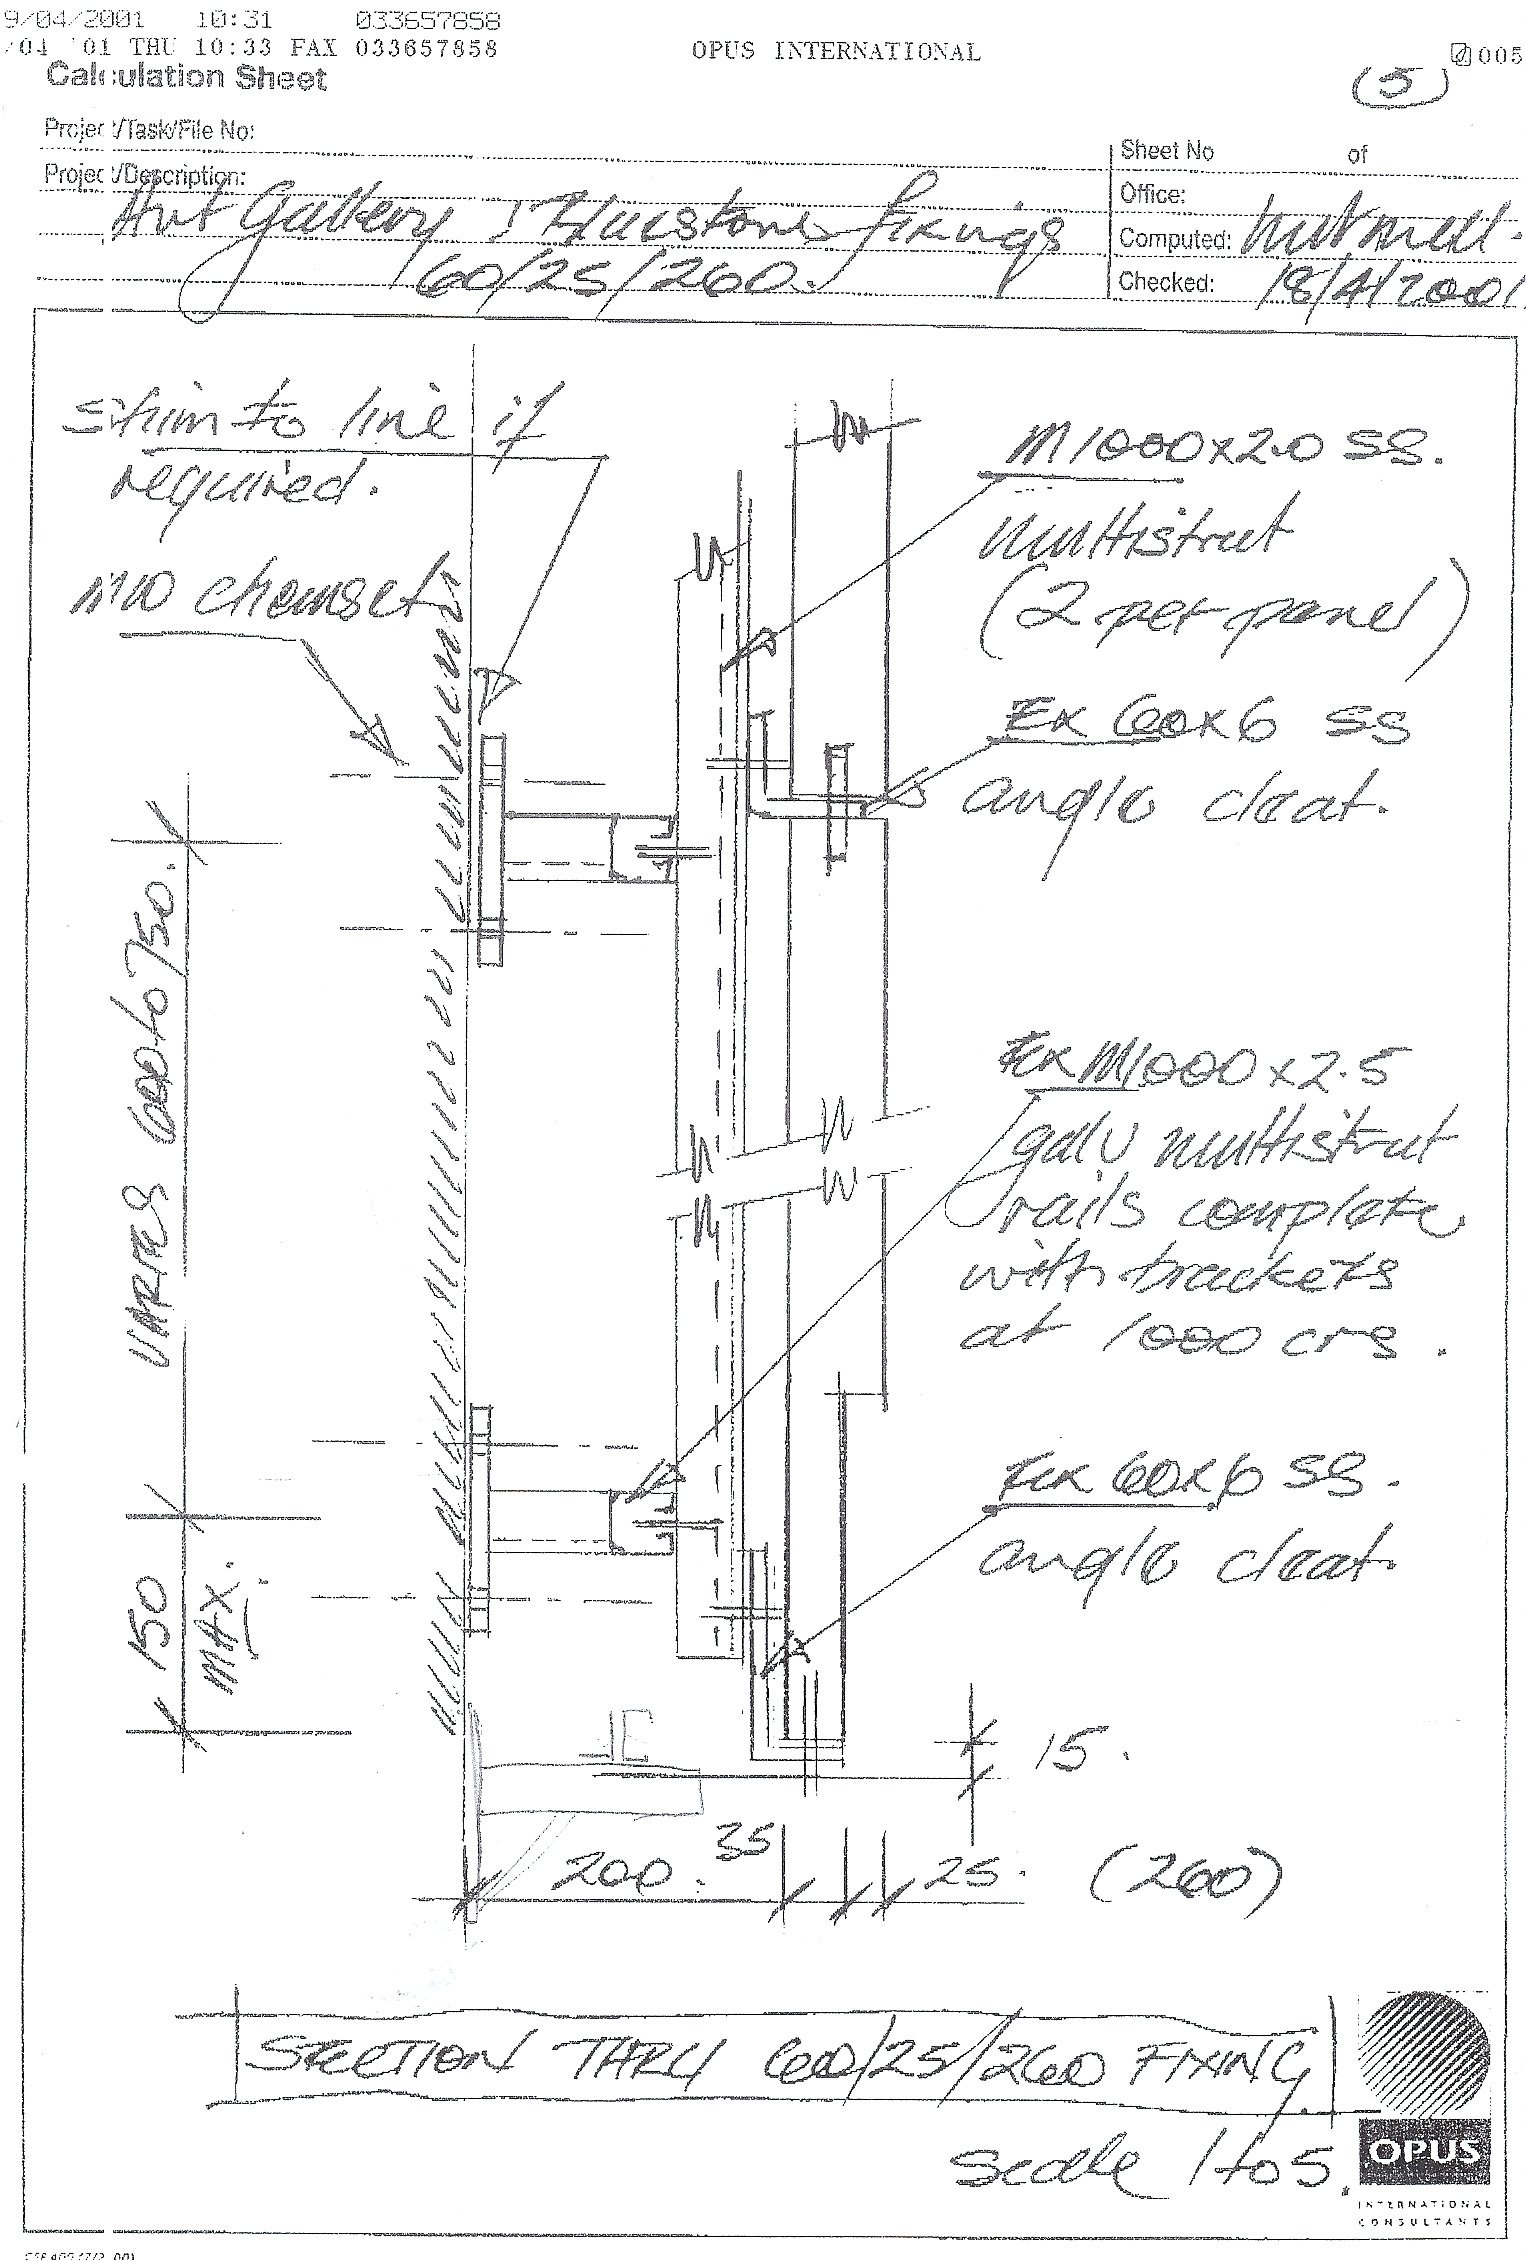 9/04/2001 10:31 033657858
/04 '01 THU 10:33 FAX 033657858 OPUS INTERNATIONAL 005
(5)
Calculation Sheet
Project/Task/File No:
Project/Description:
Art Gallery : Bluestone fixings
60/25/260.
Sheet No of
Office:
Computed:
Checked: 18/4/2001
shim to line if
required.
M10 chemset
M1000x2.0 SS.
multistrut
(2 per panel)
Ex 60x6 SS
angle cleat.
VARIES 600 to 750.
Ex M1000x2.5
galv multistrut
rails complete
with brackets
at 1000 crs.
Ex 60x6 SS.
angle cleat.
150
MAX.
15.
200. 35 25. (260)
SECTION THRU 60/25/260 FIXING
scale 1 to 5.
OPUS
INTERNATIONAL
CONSULTANTS